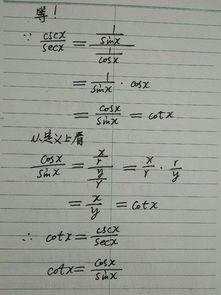 等!
∵ cscx/secx = (1/sinx)/(1/cosx)
= 1/sinx · cosx
= cosx/sinx = cotx
从定义上看
cosx/sinx = (x/r)/(y/r) = x/r · r/y
= x/y = cotx
∴ cotx = cscx/secx
cotx = cosx/sinx